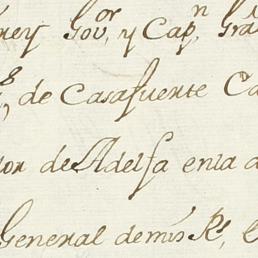 rrey Gov.or, y Cap.n Gra
s, de Casafuerte Ca
or de Adelfa enla a
General demis Rs, e